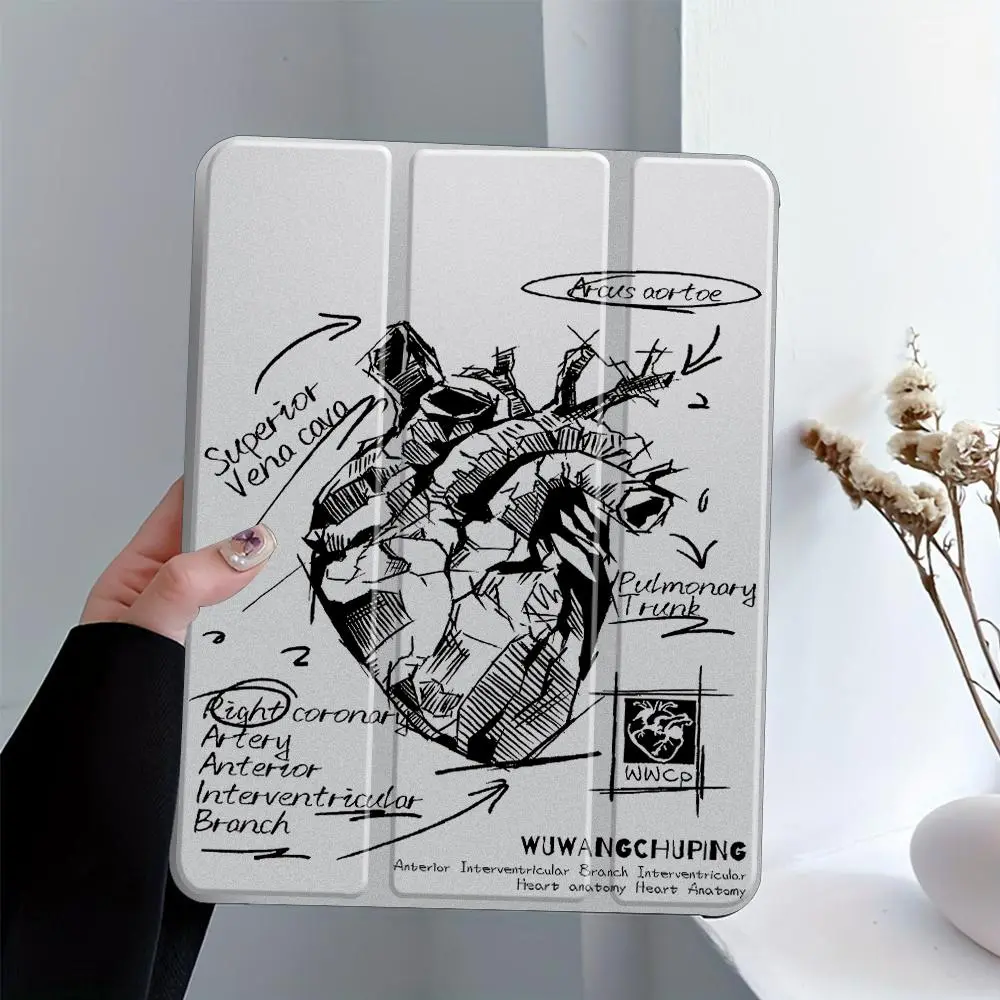 Arcus aortoe
Superior
Vena cava
Pulmonary
Trunk
Right coronary
Artery
Anterior
Interventricular
Branch
WWCp
WUWANGCHUPING
Anterior Interventricular Branch Interventricular
Heart anatomy Heart Anatomy